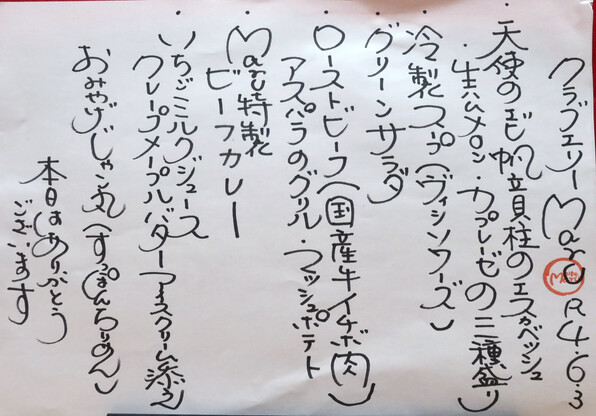 クラブエリー Maru R4.6.3
・天使のエビ帆立貝柱のエスカベッシュ
・生ハムメロン・カプレーゼの三種盛り
・冷製スープ(ヴィシソワーズ)
グリーンサラダ
・ローストビーフ(国産牛イチボ肉)
アスパラのグリル・マッシュポテト
・Maru特製
ビーフカレー
・いちごミルクジュース
クレープメープルバターアイスクリーム添え
おみやげじゃこ丸(すっぽんちりめん)
本日はありがとう
ございます